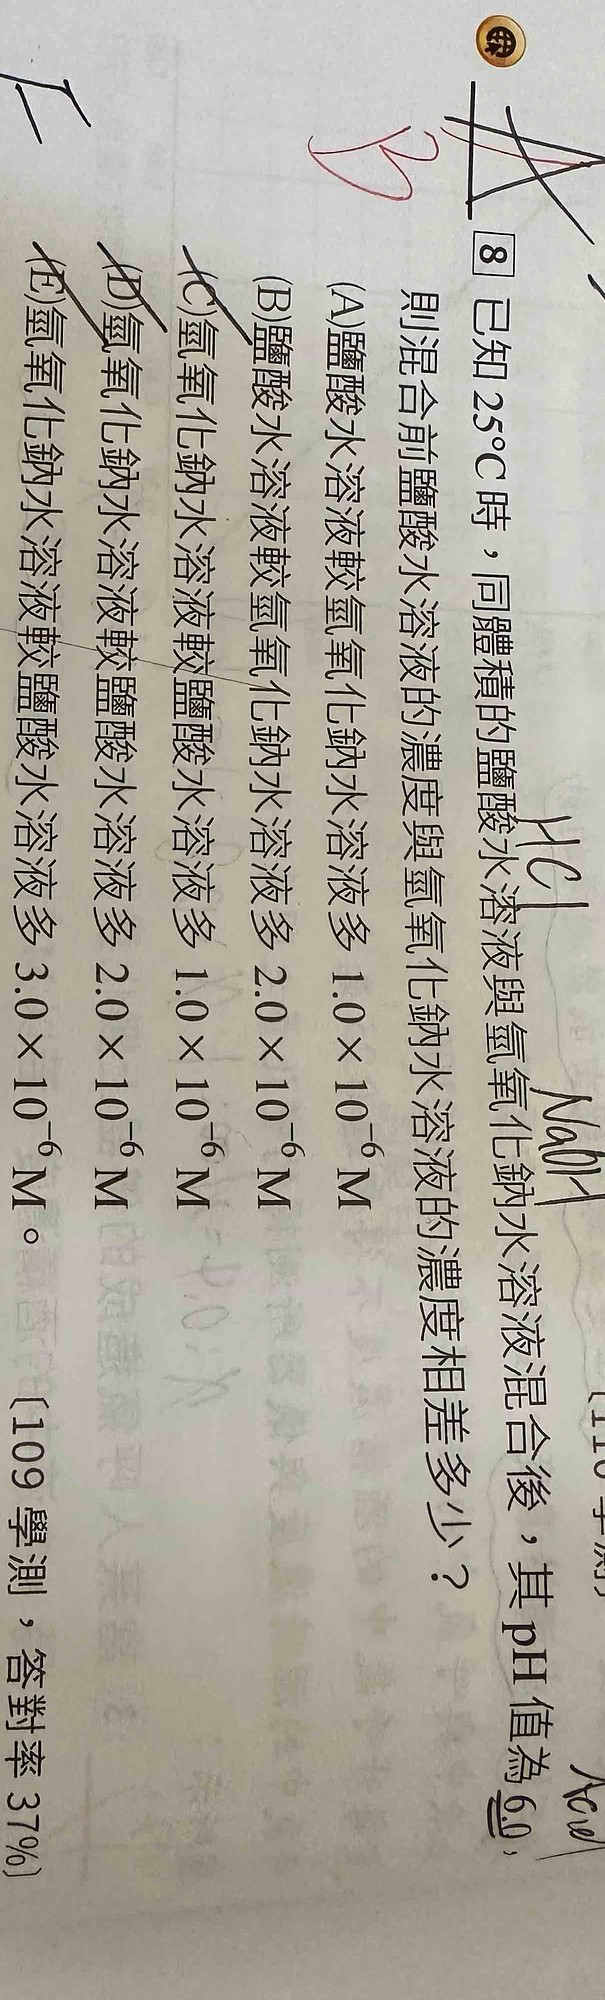 A
B
8 已知 25°C 時，同體積的鹽酸水溶液與氫氧化鈉水溶液混合後，其 pH 值為 6.0，
HCl
NaOH
Acid
則混合前鹽酸水溶液的濃度與氫氧化鈉水溶液的濃度相差多少？
(A)鹽酸水溶液較氫氧化鈉水溶液多 1.0 × 10⁻⁶ M
(B)鹽酸水溶液較氫氧化鈉水溶液多 2.0 × 10⁻⁶ M
(C)氫氧化鈉水溶液較鹽酸水溶液多 1.0 × 10⁻⁶ M
(D)氫氧化鈉水溶液較鹽酸水溶液多 2.0 × 10⁻⁶ M
(E)氫氧化鈉水溶液較鹽酸水溶液多 3.0 × 10⁻⁶ M。
〔109 學測，答對率 37%〕